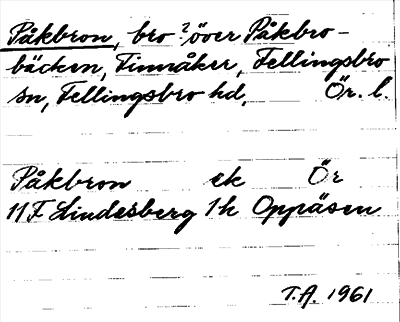 Påkbron, bro? över Påkbro-
bäcken, Finnåker, Fellingsbro
sn, Fellingsbro hd, Ör. l.
Påkbron ek Ör
11F Lindesberg 1h Oppåsen
T.A. 1961